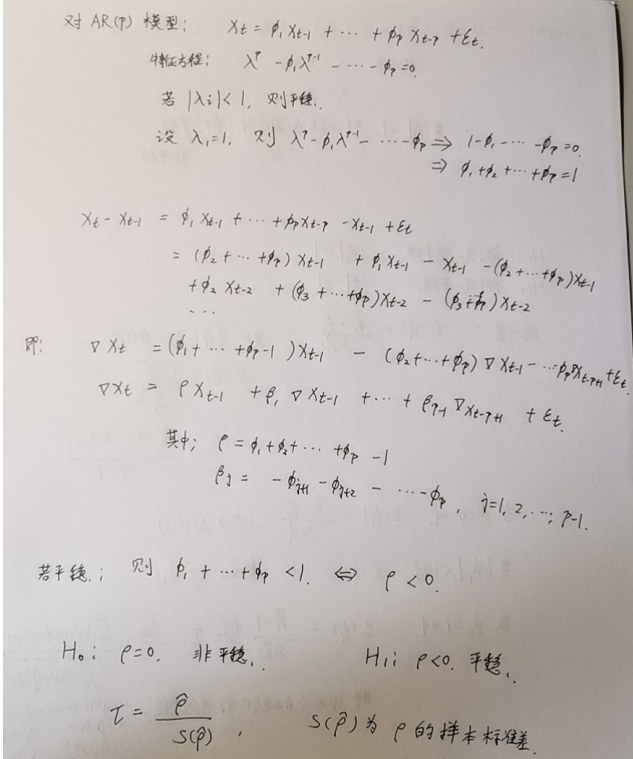 对 AR(p) 模型: Xt = ϕ₁Xt-1 + ⋯ + ϕp Xt-p + εt.
特征方程: λ^p - ϕ₁λ^{p-1} - ⋯ - ϕp = 0.
若 |λi| < 1, 则平稳.
设 λ₁=1, 则 λ^p - ϕ₁λ^{p-1} - ⋯ - ϕp ⇒ 1-ϕ₁ - ⋯ - ϕp = 0.
⇒ ϕ₁+ϕ₂+ ⋯ +ϕp = 1
Xt - Xt-1 = ϕ₁ Xt-1 + ⋯ + ϕpXt-p - Xt-1 + εt
= (ϕ₂ + ⋯ +ϕp) Xt-1 + ϕ₁ Xt-1 - Xt-1 - (ϕ₂+ ⋯ +ϕp)Xt-1
+ϕ₂ Xt-2 + (ϕ₃ + ⋯ +ϕp)Xt-2 - (ϕ₃+ϕp)Xt-2
⋯
即: ∇Xt = (ϕ₁+ ⋯ +ϕp-1 )Xt-1 - (ϕ₂+⋯+ϕp) ∇Xt-1 - ⋯ ϕp∇Xt-p+1 + εt.
∇Xt = ρXt-1 + β₁ ∇Xt-1 + ⋯ + βp-1 ∇Xt-p+1 + εt.
其中; ρ = ϕ₁+ϕ₂+ ⋯ +ϕp -1
βj = -ϕj+1 - ϕj+2 - ⋯ -ϕp, j=1, 2, ⋯, p-1.
若平稳.; 则 ϕ₁ + ⋯ +ϕp < 1. ⇔ ρ < 0.
H₀: ρ=0. 非平稳. H₁: ρ<0. 平稳.
τ = ρ̂ / S(ρ̂) , S(ρ̂) 为 ρ 的样本标准差.